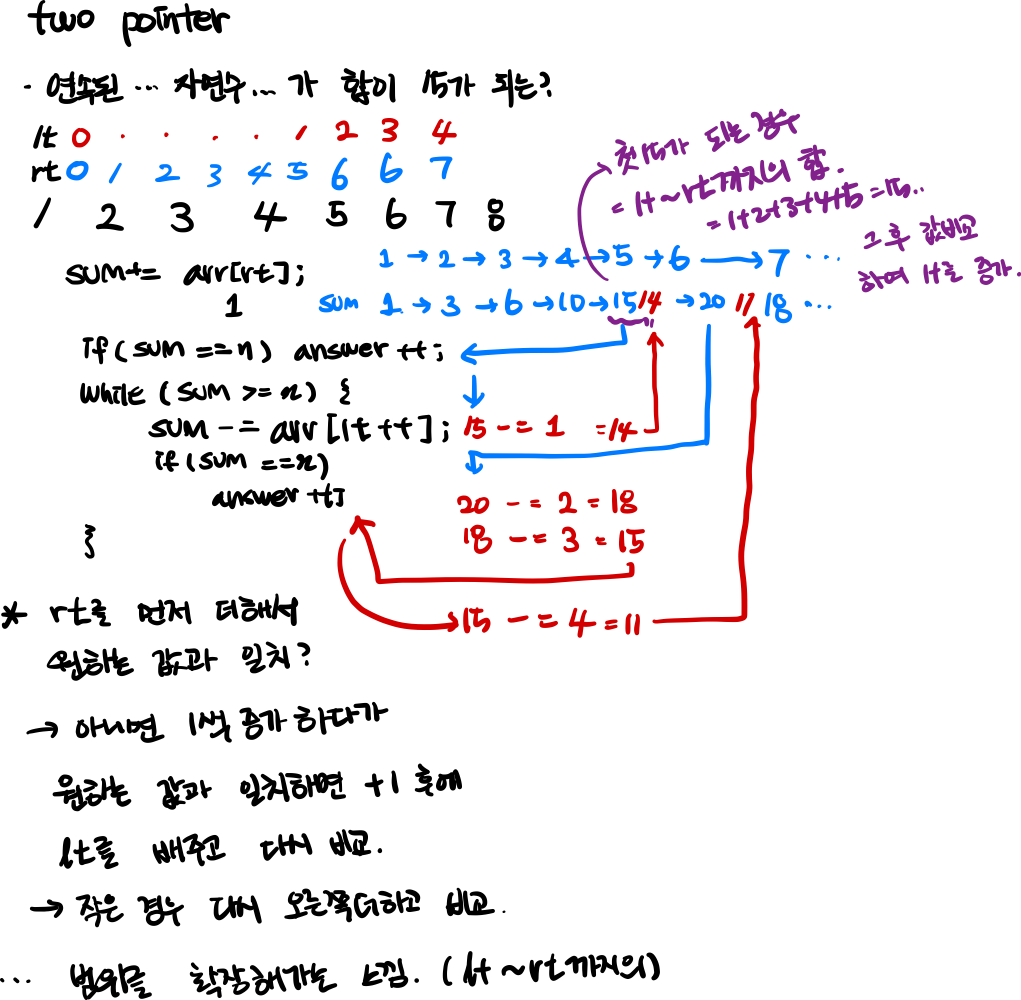 two pointer
· 연속된 ... 자연수... 가 합이 15가 되는?
lt 0 · · · · 1 2 3 4
rt 0 1 2 3 4 5 6 6 7
1 2 3 4 5 6 7 8
첫 15가 되는 경우
= lt ~ rt까지의 합.
= 1+2+3+4+5 = 15..
그 후 값비교
하여 lt를 증가.
1 → 2 → 3 → 4 → 5 → 6 → 7 ...
sum += arr[rt];
1
sum 1 → 3 → 6 → 10 → 15 14 → 20 11 18 ...
if (sum == n) answer ++;
while (sum >= n) {
sum -= arr[lt++]; 15 -= 1 = 14
if (sum == n)
answer ++;
20 -= 2 = 18
18 -= 3 = 15
}
15 -= 4 = 11
* rt를 먼저 더해서
원하는 값과 일치?
→ 아니면 1씩 증가 하다가
원하는 값과 일치하면 +1 후에
lt를 빼주고 다시 비교.
→ 작은 경우 다시 오른쪽더하고 비교.
... 범위를 확장해가는 느낌. (lt ~ rt까지의)